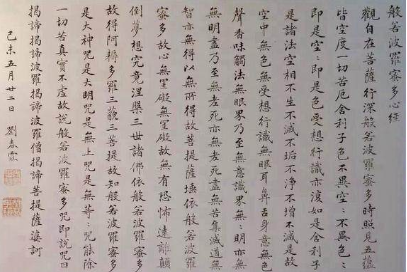 般若波羅蜜多心經
觀自在菩薩行深般若波羅蜜多時照見五蘊
皆空度一切苦厄舍利子色不異空〻不異色〻
即是空〻即是色受想行識亦復如是舍利子
是諸法空相不生不滅不垢不淨不增不減是故
空中無色無受想行識無眼耳鼻舌身意無色
聲香味觸法無眼界乃至無意識界無〻明亦無
無明盡乃至無老死亦無老死盡無苦集滅道無
智亦無得以無所得故菩提薩埵依般若波羅
蜜多故心無罣礙無罣礙故無有恐怖遠離顛
倒夢想究竟涅槃三世諸佛依般若波羅蜜多
故得阿耨多羅三藐三菩提故知般若波羅蜜多
是大神咒是大明咒是無上咒是無等〻咒能除
一切苦真實不虛故說般若波羅蜜多咒即說咒曰
揭諦揭諦波羅揭諦波羅僧揭諦菩提薩婆訶
己未五月廿二日 劉春霖